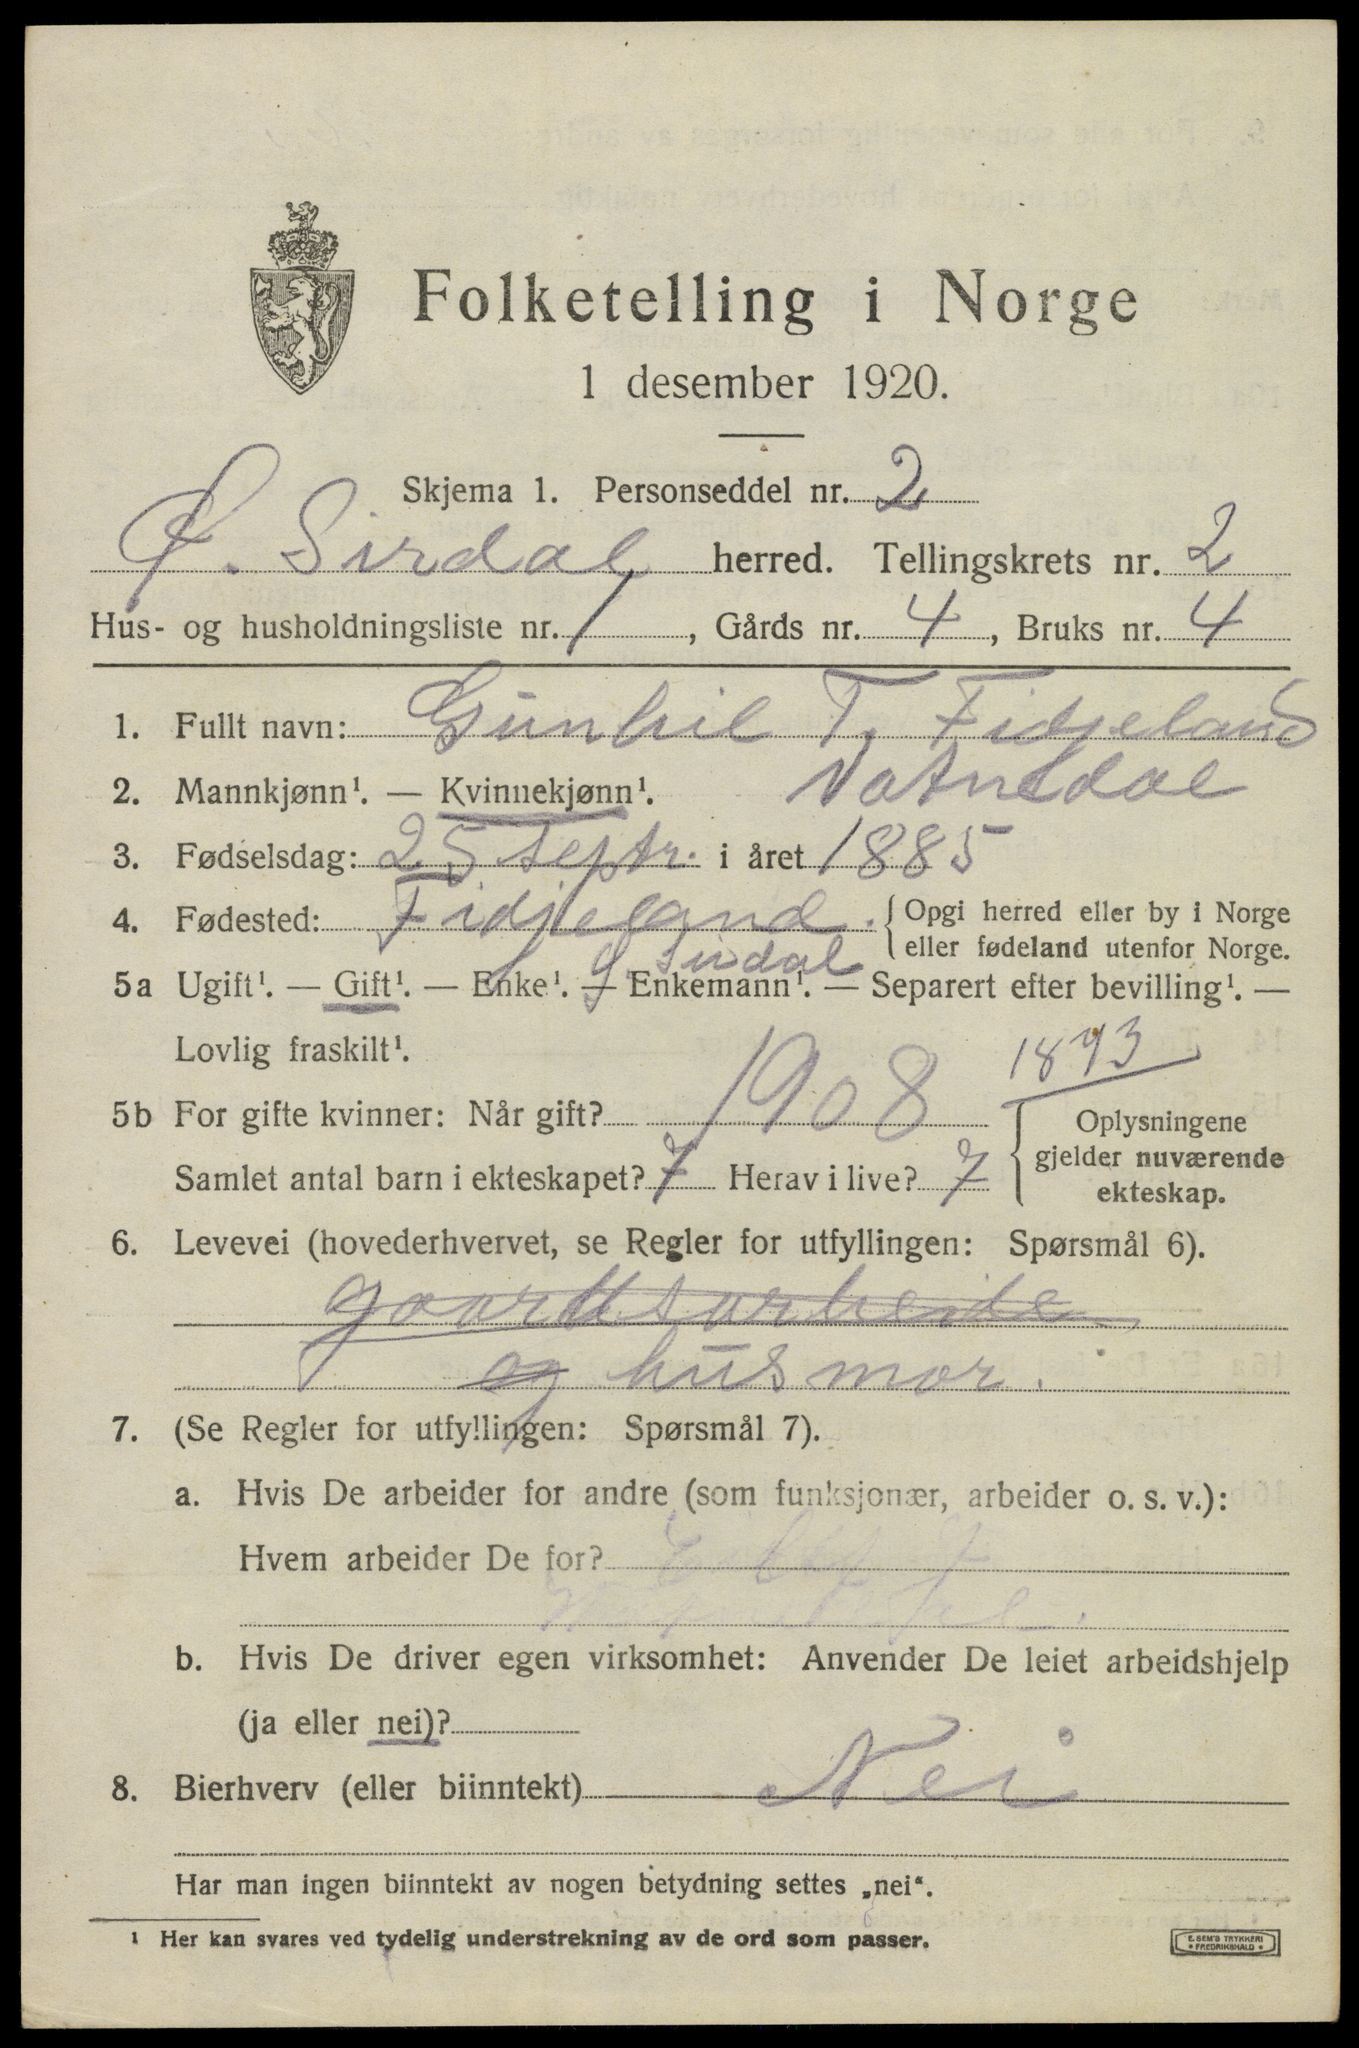 Folketelling i Norge
1 desember 1920.
Skjema 1. Personseddel nr. 2
Ø. Sirdal herred. Tellingskrets nr. 2
Hus- og husholdningsliste nr. 1, Gårds nr. 4, Bruks nr. 4
1. Fullt navn: Gunhil T. Fidjeland
Vatnedal
2. Mannkjønn¹. — Kvinnekjønn¹.
3. Fødselsdag: 25 Septr. i året 1885
4. Fødested: Fidjeland. {Opgi herred eller by i Norge
eller fødeland utenfor Norge.
Ø. Sirdal
5a Ugift¹. — Gift¹. — Enke¹. — Enkemann¹. — Separert efter bevilling¹. —
Lovlig fraskilt¹.
1893
5b For gifte kvinner: Når gift? 1908 {Oplysningene
gjelder nuværende
ekteskap.
Samlet antal barn i ekteskapet? 7 Herav i live? 7
6. Levevei (hovederhvervet, se Regler for utfyllingen: Spørsmål 6).
gaardsarbeide
og husmor.
7. (Se Regler for utfyllingen: Spørsmål 7).
a. Hvis De arbeider for andre (som funksjonær, arbeider o. s. v.):
Hvem arbeider De for?
b. Hvis De driver egen virksomhet: Anvender De leiet arbeidshjelp
(ja eller nei)?
8. Bierhverv (eller biinntekt) Nei
Har man ingen biinntekt av nogen betydning settes „nei“.
¹ Her kan svares ved tydelig understrekning av de ord som passer.
E. SEM'S TRYKKERI
• FREDRIKSHALD •